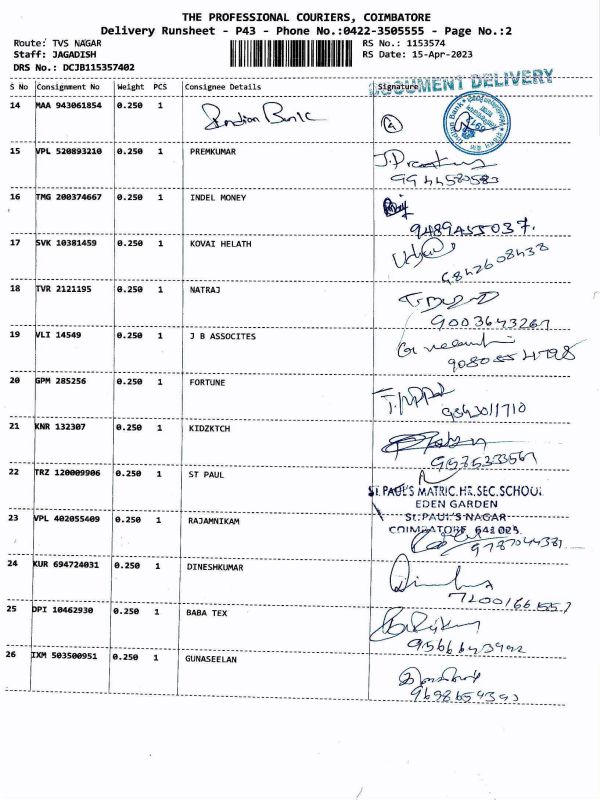 THE PROFESSIONAL COURIERS, COIMBATORE
Delivery Runsheet - P43 - Phone No.:0422-3505555 - Page No.:2
Route: TVS NAGAR RS No.: 1153574
Staff: JAGADISH RS Date: 15-Apr-2023
DRS No.: DCJB115357402
DOCUMENT DELIVERY
S No Consignment No Weight PCS Consignee Details Signature
14 MAA 943061854 0.250 1 Indian Bank
15 VPL 520893210 0.250 1 PREMKUMAR
9944580583
16 TMG 200374667 0.250 1 INDEL MONEY
9489455037.
17 SVK 10381459 0.250 1 KOVAI HELATH
9842608438
18 TVR 2121195 0.250 1 NATRAJ
9003643267
19 VLI 14549 0.250 1 J B ASSOCITES
9080554798
20 GPM 285256 0.250 1 FORTUNE
9843011710
21 KNR 132307 0.250 1 KIDZKTCH
22 TRZ 120009906 0.250 1 ST PAUL
ST. PAUL'S MATRIC.HR.SEC.SCHOOL
EDEN GARDEN
ST. PAUL'S NAGAR
COIMBATORE 641025
23 VPL 402055409 0.250 1 RAJAMNIKAM
9787044381
24 KUR 694724031 0.250 1 DINESHKUMAR
25 DPI 10462930 0.250 1 BABA TEX
26 IXM 503500951 0.250 1 GUNASEELAN
9698654393